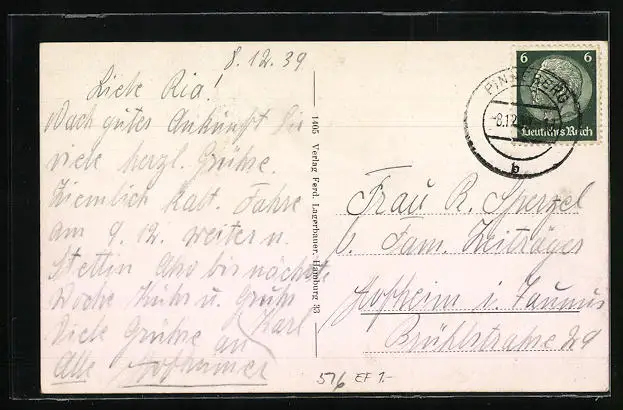 8.12.39
Liebe Ria!
Nach guter Ankunft Dir
viele herzl. Grüße.
Ziemlich kalt. Fahre
am 9.12. weiter n.
Stettin Also bis nächste
Woche u. Gruß
Karl
Viele Grüße an
Alle Hofheimer
1405 Verlag Ferd. Lagerbauer, Hamburg 33
6 6
Deutsches Reich
PINNEBERG
-8.12.
b
Frau R. Sperzel
b. Fam.
Hofheim i. Taunus
Brühlstraße 29
516 EF 1.-